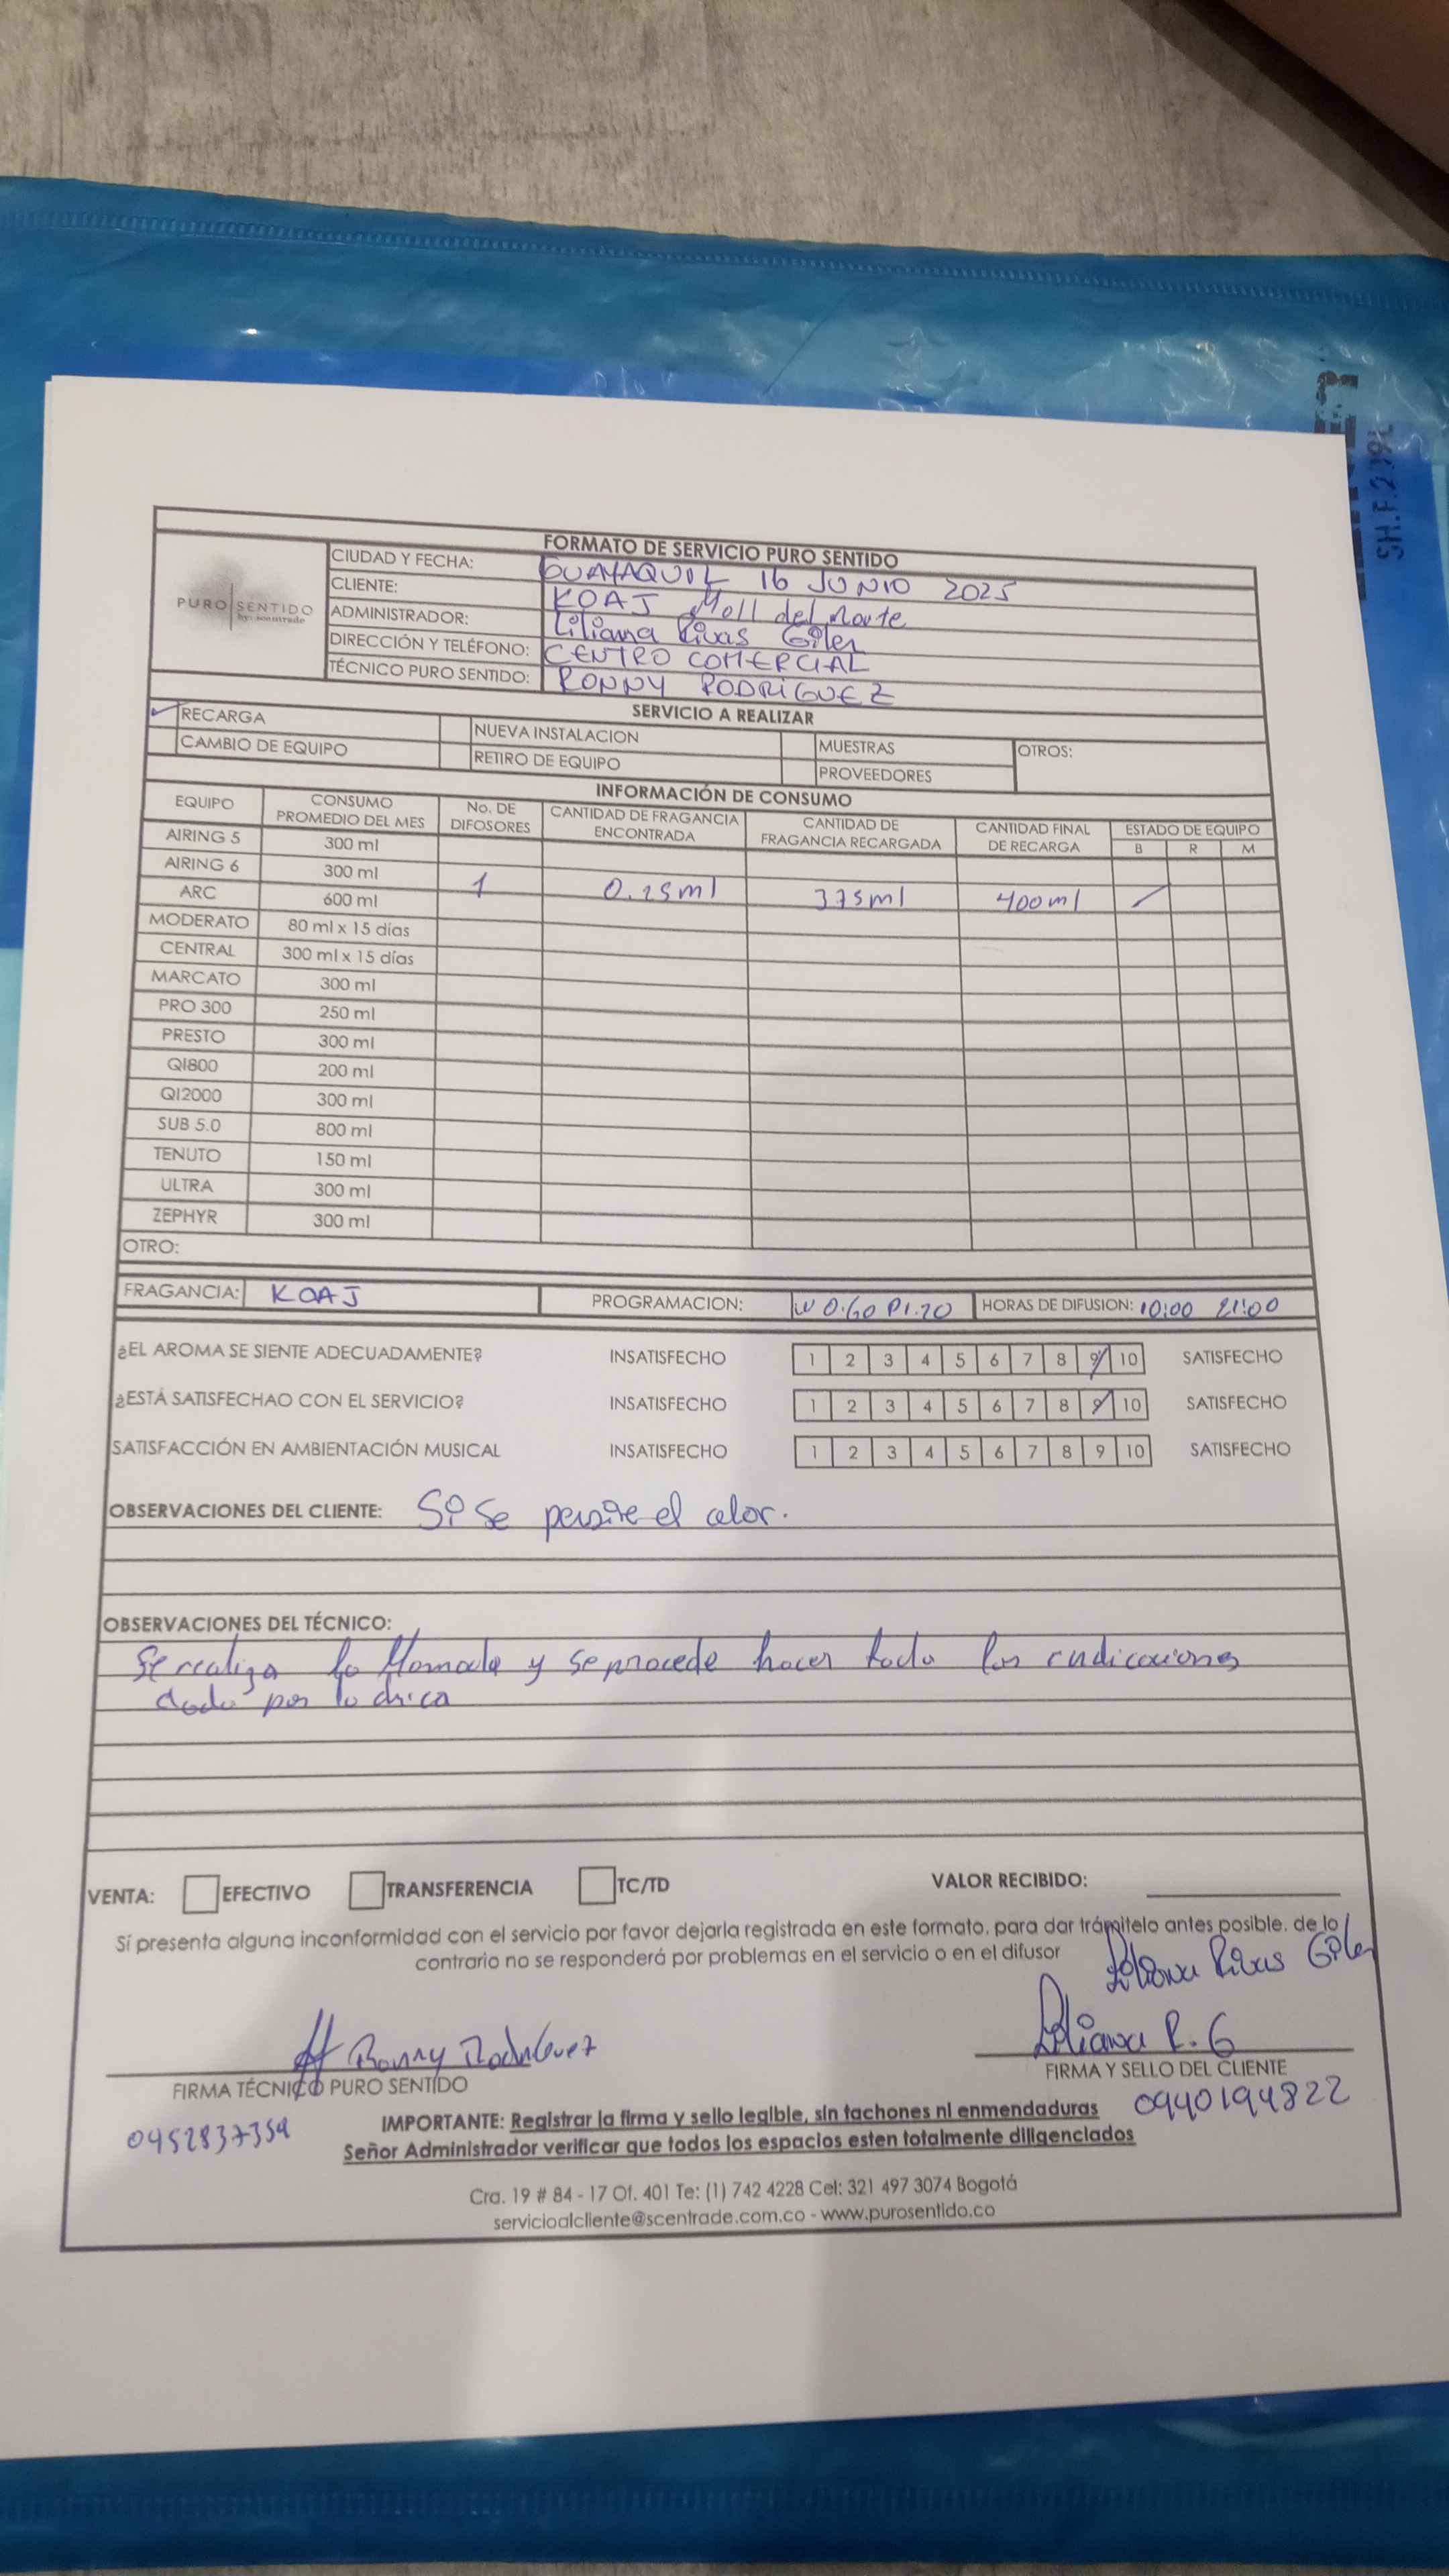 FORMATO DE SERVICIO PURO SENTIDO
PURO SENTIDO
by: scentrade
CIUDAD Y FECHA: GUAYAQUIL 16 JUNIO 2025
CLIENTE: KOAJ Moll del Norte
ADMINISTRADOR: Liliana Rivas Giler
DIRECCIÓN Y TELÉFONO: CENTRO COMERCIAL
TÉCNICO PURO SENTIDO: RONNY RODRIGUEZ
SERVICIO A REALIZAR
RECARGA NUEVA INSTALACION MUESTRAS OTROS:
CAMBIO DE EQUIPO RETIRO DE EQUIPO PROVEEDORES
INFORMACIÓN DE CONSUMO
EQUIPO CONSUMO PROMEDIO DEL MES No. DE DIFOSORES CANTIDAD DE FRAGANCIA ENCONTRADA CANTIDAD DE FRAGANCIA RECARGADA CANTIDAD FINAL DE RECARGA ESTADO DE EQUIPO
B R M
AIRING 5 300 ml
AIRING 6 300 ml
ARC 600 ml 1 375ml 400ml
MODERATO 80 ml x 15 días
CENTRAL 300 ml x 15 días
MARCATO 300 ml
PRO 300 250 ml
PRESTO 300 ml
QI800 200 ml
QI2000 300 ml
SUB 5.0 800 ml
TENUTO 150 ml
ULTRA 300 ml
ZEPHYR 300 ml
OTRO:
FRAGANCIA: KOAJ PROGRAMACION: W 0.60 HORAS DE DIFUSION: 10:00 21:00
¿EL AROMA SE SIENTE ADECUADAMENTE? INSATISFECHO 1 2 3 4 5 6 7 8 9 10 SATISFECHO
¿ESTÁ SATISFECHAO CON EL SERVICIO? INSATISFECHO 1 2 3 4 5 6 7 8 9 10 SATISFECHO
SATISFACCIÓN EN AMBIENTACIÓN MUSICAL INSATISFECHO 1 2 3 4 5 6 7 8 9 10 SATISFECHO
OBSERVACIONES DEL CLIENTE: Si se el
OBSERVACIONES DEL TÉCNICO:
Se realiza la y se procede hacer
por la
VENTA: EFECTIVO TRANSFERENCIA TC/TD VALOR RECIBIDO:
Sí presenta alguna inconformidad con el servicio por favor dejarla registrada en este formato, para dar trámitelo antes posible, de lo
contrario no se responderá por problemas en el servicio o en el difusor
Liliana Rivas Giler
Ronny Rodriguez Liliana R. G
FIRMA TÉCNICO PURO SENTIDO FIRMA Y SELLO DEL CLIENTE
0940194822
IMPORTANTE: Registrar la firma y sello legible, sin tachones ni enmendaduras
Señor Administrador verificar que todos los espacios esten totalmente diligenciados
Cra. 19 # 84 - 17 Of. 401 Te: (1) 742 4228 Cel: 321 497 3074 Bogotá
servicioalcliente@scentrade.com.co - www.purosentido.co